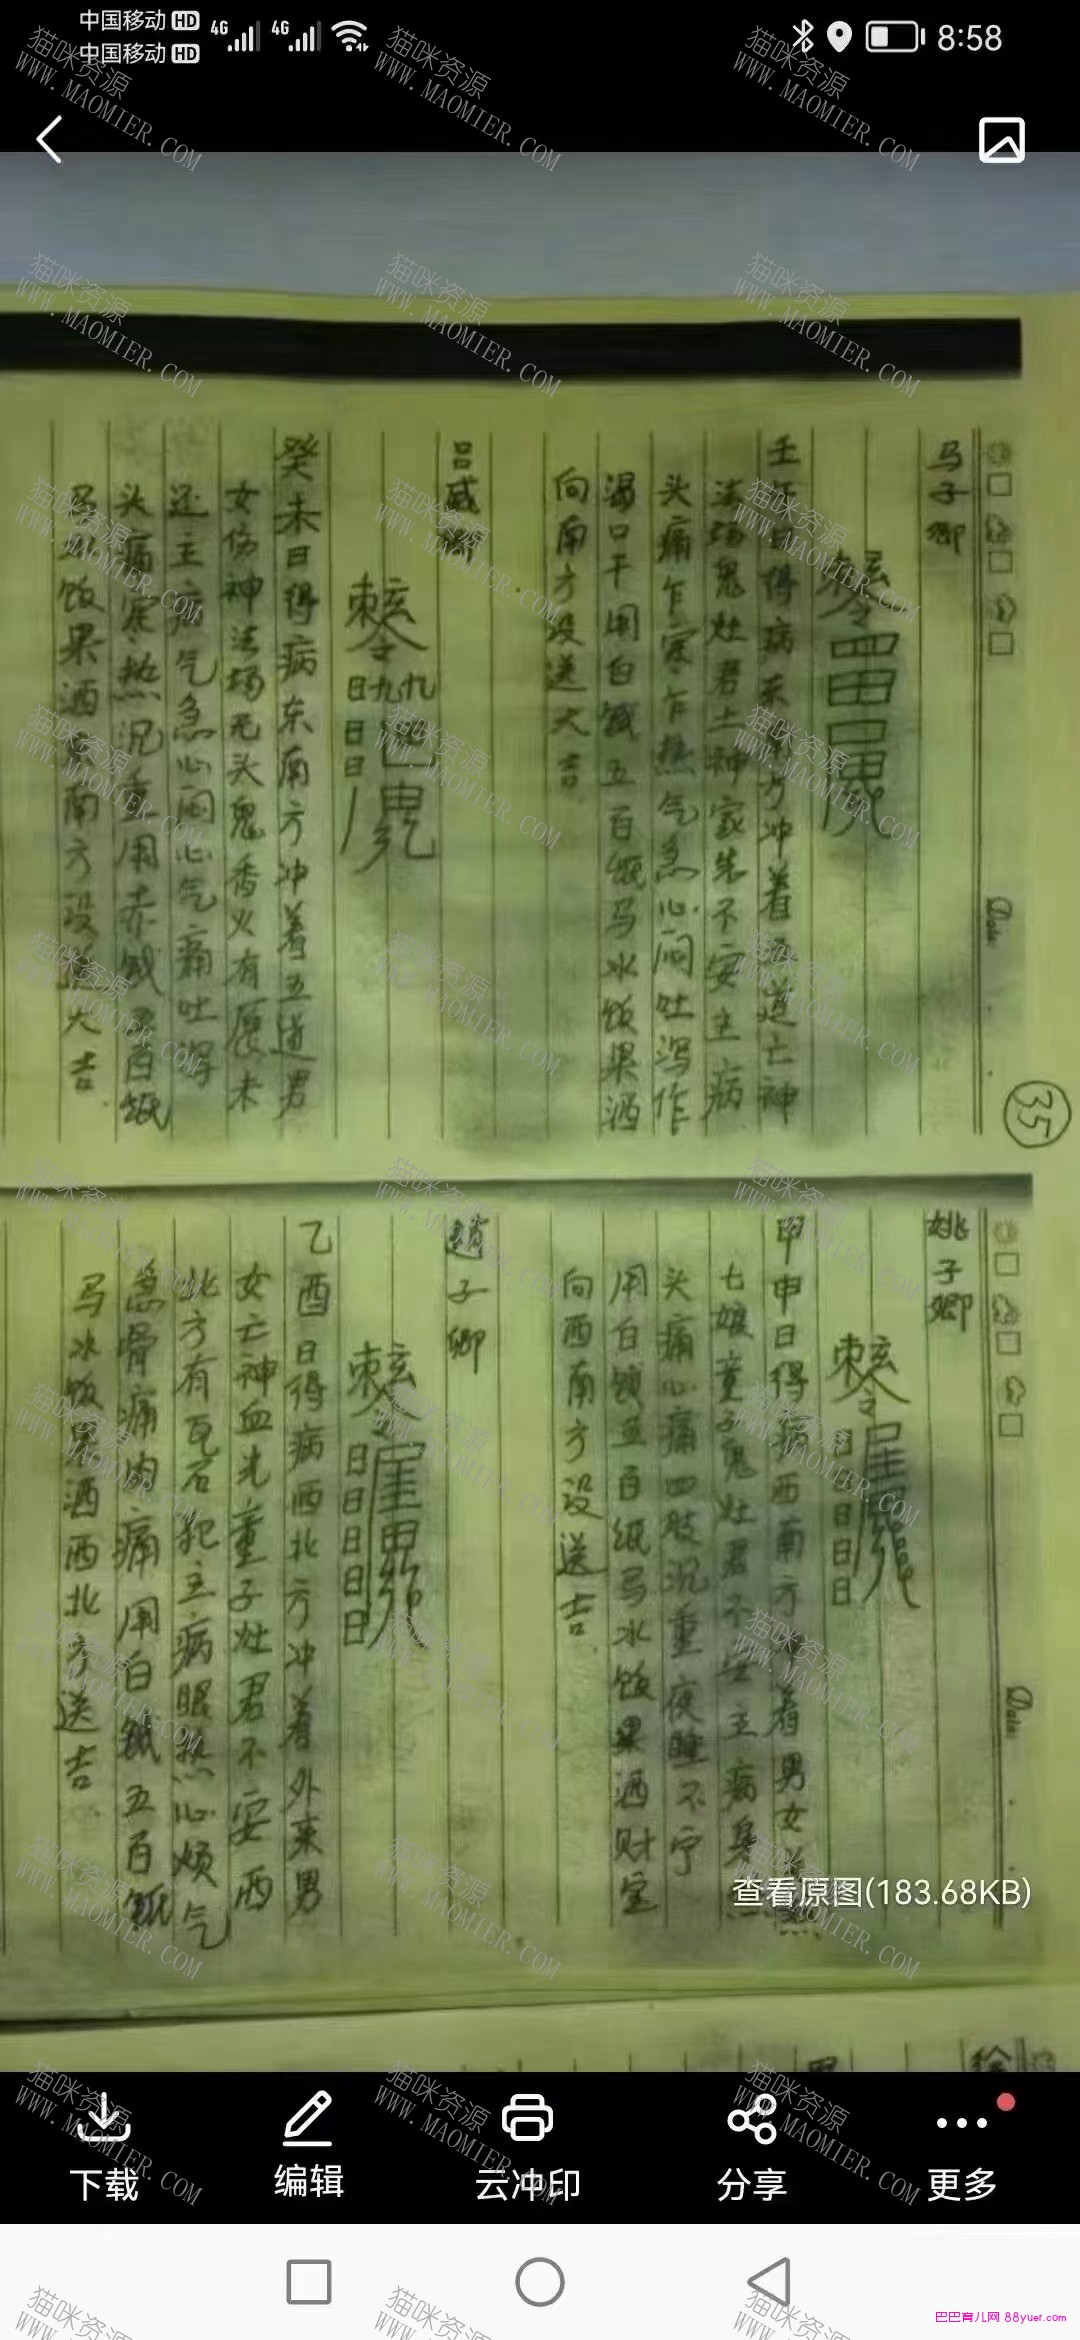 中国移动 HD 4G 4G 8:58
中国移动 HD
马子卿
壬午日得病东南方冲着五道亡神
法场鬼灶君土神家先不安主病
头痛乍寒乍热气急心闷吐泻作
渴口干用白钱五百纸马水饭果酒
向南方设送大吉
吕威卿
癸未日得病东南方冲着五道男
女伤神法场无头鬼香火有愿未
还主病气急心闷心气痛吐泻
头痛寒热沉重用赤钱五百纸
马水饭果酒东南方设送大吉
35
Date
姚子卿
甲申日得病西南方冲着男女
七娘童子鬼灶君不安主病身热
头痛心痛四肢沉重夜睡不宁
用白钱五百纸马水饭果酒财宝
向西南方设送吉
趙子卿
乙酉日得病西北方冲着外来男
女亡神血光童子灶君不安西
北方有瓦石犯主病眼热心烦气
急骨痛肉痛用白钱五百纸
马水饭果酒西北方送吉
Date
查看原图(183.68KB)
下载
编辑
云冲印
分享
更多
猫咪资源
WWW.MAOMIER.COM
巴巴育儿网 88yuer.com